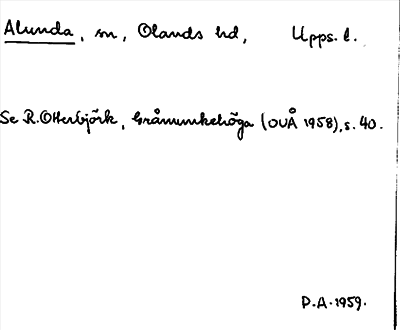 Alunda, sn, Olands hd, Upps. l.
Se R. Otterbjörk, Gråmunkehöga (OUÅ 1958), s. 40.
P.A. 1959.